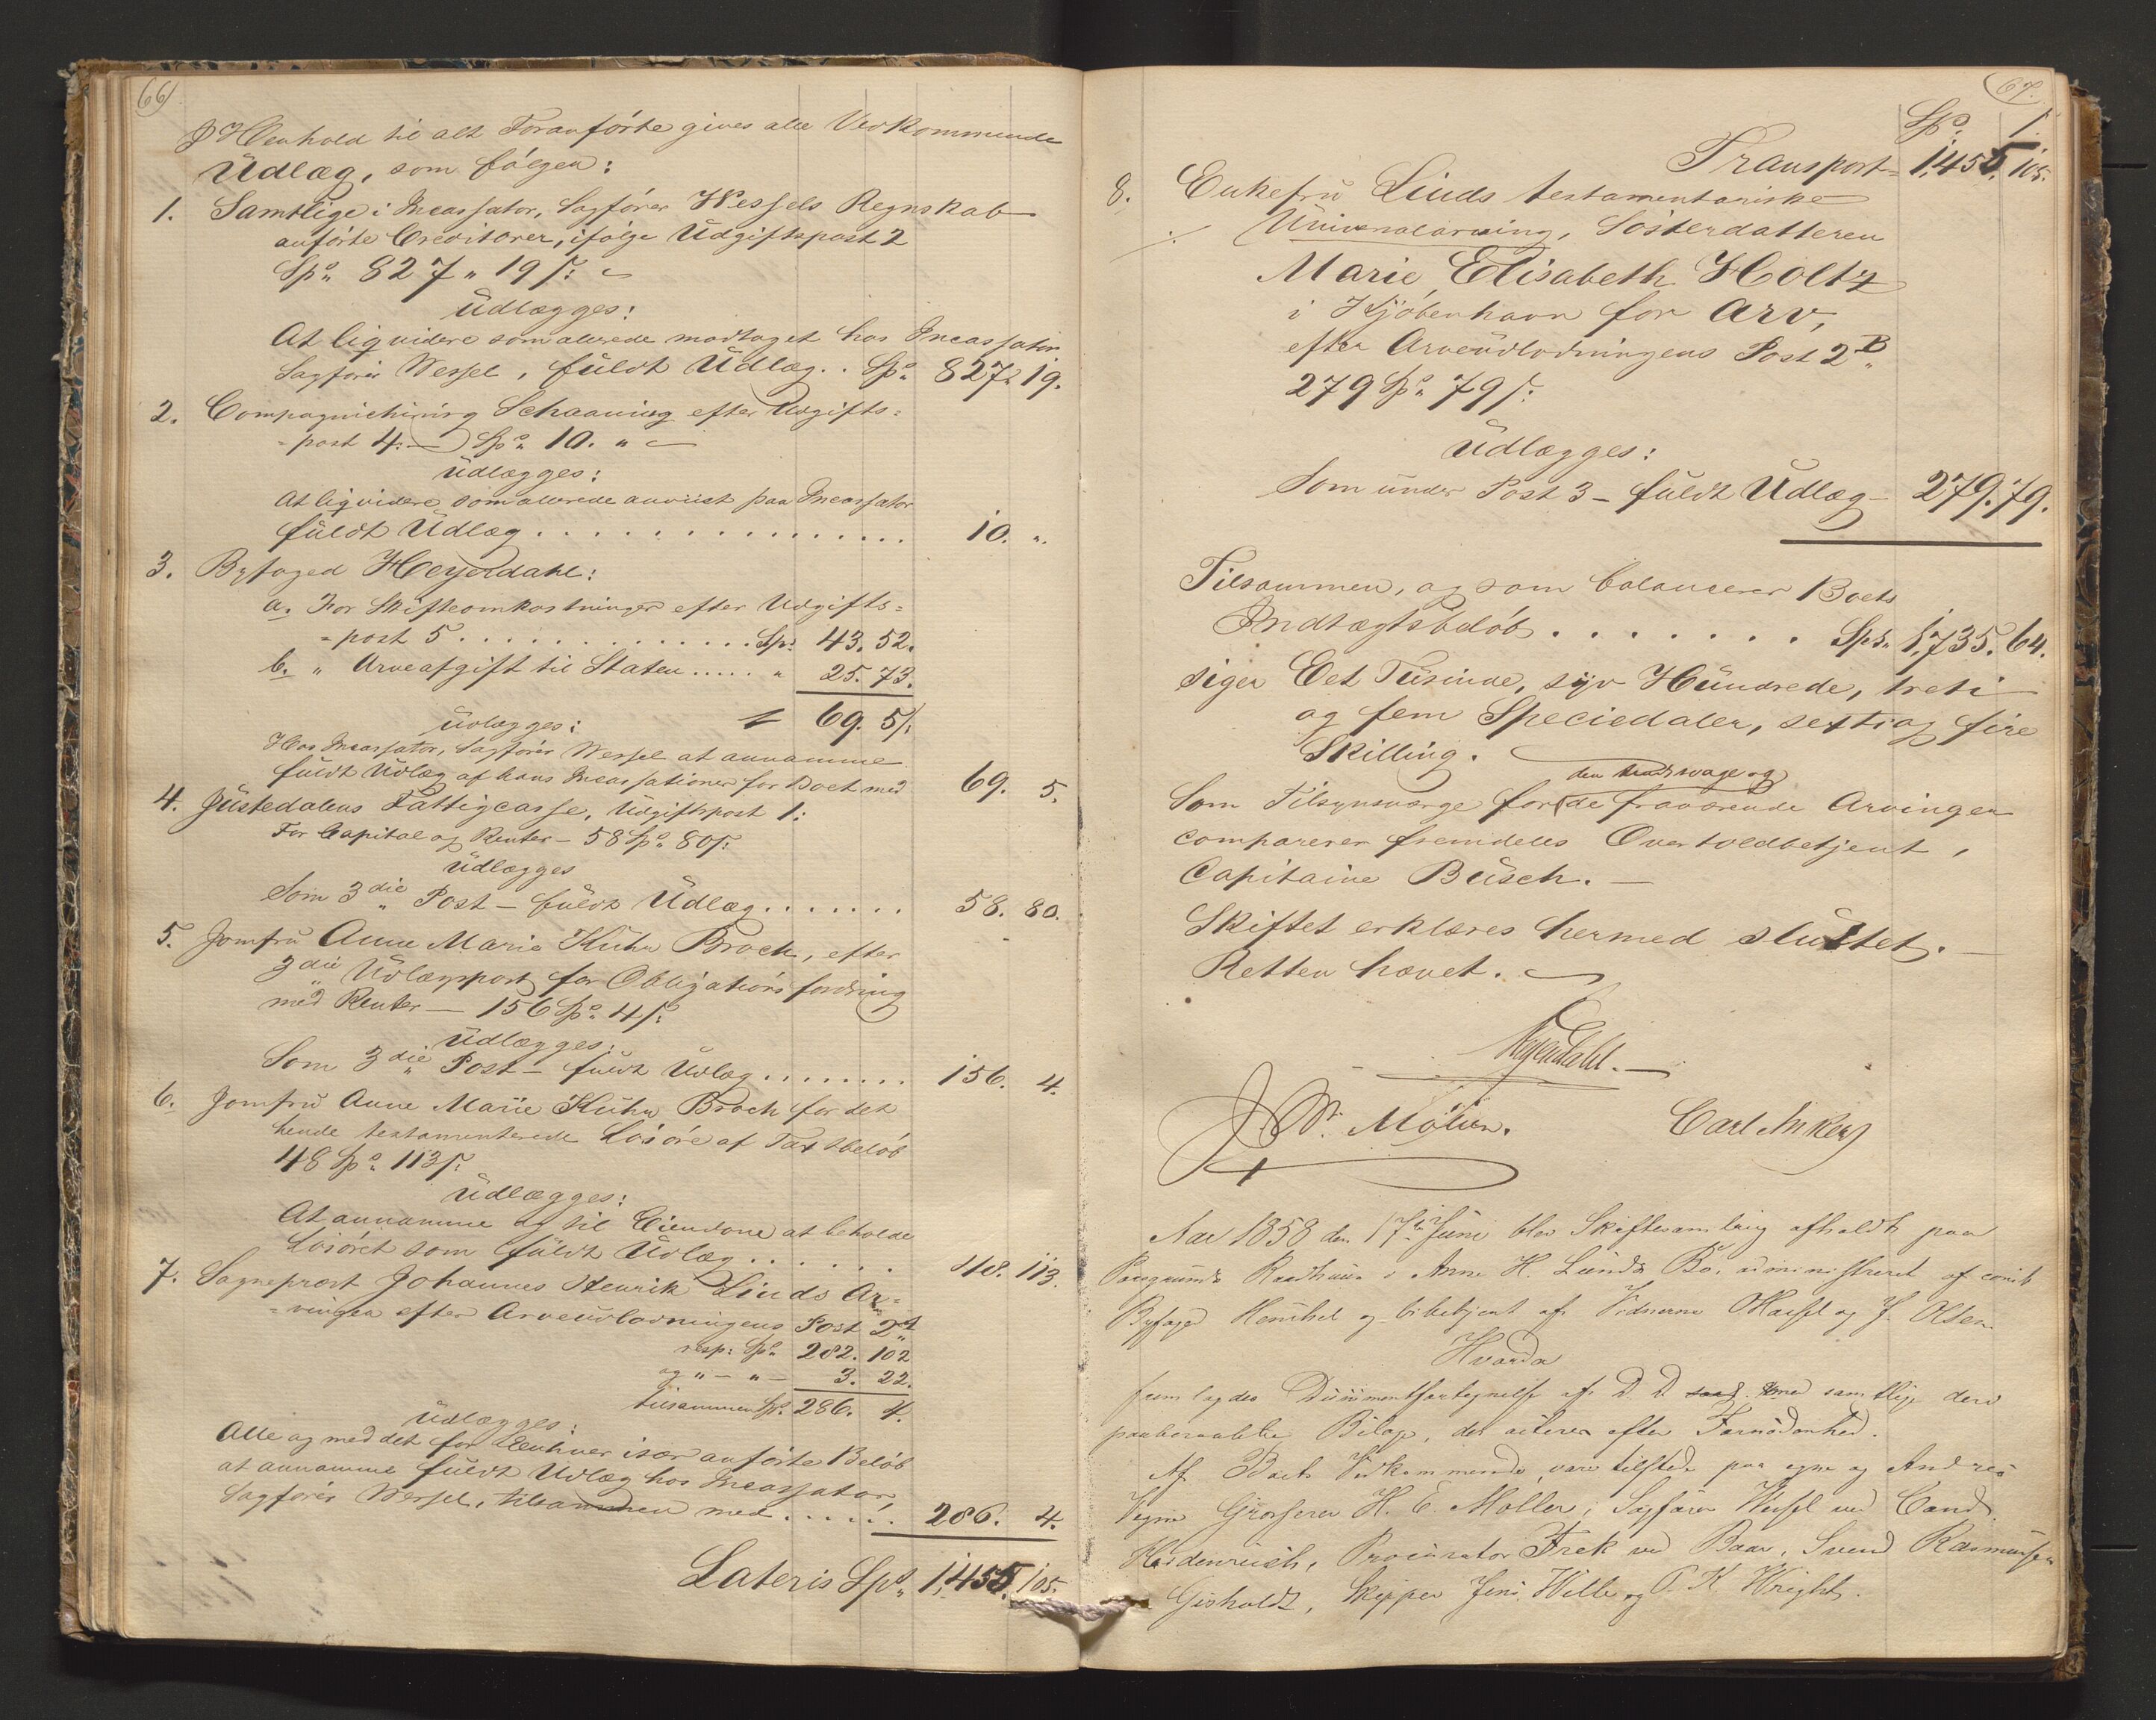 66
I Henhold til alt Foranførte gives alle Vedkommende
Udlæg, som følger:
1. Samtlige i Incassator, Sagfører Wessels Regnskab
anførte Creditorer, ifølge Udgiftspost 2
Spd. 827 " 19 s:
Udlægges:
At liqvidere som allerede modtaget hos Incassator
Sagfører Wessel, fuldt Udlæg.. Spd. 827. 19.
2. Compagnichirurg Schaaning efter Udgifts=
=post 4: — Spd. 10. "
Udlægges:
At liqvidere som allerede anviist paa Incassator
fuldt Udlæg . . . . . . . . . . . . . . . 10. ".
3. Byfoged Heyerdahl:
a. For Skifteomkostninger efter Udgifts=
=post 5 . . . . . . . . . . . . . Spd. 43. 52.
b. " Arveafgift til Staten ..... " 25. 73.
Udlægges: 69. 5 s:
Hos Incassator, Sagfører Wessel at annamme
fuldt Udlæg af hans Incassationer for Boet med 69. 5.
4. Justedalens Fattigcasse, Udgiftspost 1:
For Capital og Renter – 58 Spd. 80 s:
Udlægges
Som 3die Post – fuldt Udlæg . . . . . . . 58. 80.
5. Jomfru Anne Marie Kuhn Broch, efter
3die Udlægspost for Obligationsfordring
med Renter — 156 Spd. 4 s:
Udlægges:
Som 3die Post – fuldt Udlæg . . . . . . . . 156. 4.
6. Jomfru Anne Marie Kuhn Broch for det
hende testamenterede Løsøre af Taxtbeløb
48 Spd. 113 s:
Udlægges:
At annamme og til Eiendom at beholde
Løsøret som fuldt Udlæg . . . . . . . 48. 113.
7. Sogneprest Johannes Henrik Linds Ar=
=vinger efter Arveudlodningens Post 2 A
resp: Spd. 282. 102
og " – " – 3. 22.
tilsammen Spd. 286. 4.
Udlægges:
Alle og med det for Enhver især anførte Beløb
at annamme fuldt Udlæg hos Incassator,
Sagfører Wessel, tilsammen med ...... 286. 4.
Lateris Spd. 1,455. 105.
67.
Spd. s.
Transport= 1,455. 105.
8. Enkefru Linds testamentariske
Universalarving, Søsterdatteren
Marie Elisabeth Holtz
i Kjøbenhavn for Arv,
efter Arveudlodningens Post 2 B
279 Spd. 79 s:
Udlægges:
Som under Post 3 – fuldt Udlæg – 279. 79.
Tilsammen, og som balancerer Boets
Indtægtsbeløb . . . . . . . Spd. 1,735. 64.
siger Eet Tusinde, syv Hundrede, treti
og fem Speciedaler, sexti og fire
Skilling.
den og
Som Tilsynsværge for de fraværende Arvinger
comparerer fremdeles Overtoldbetjent,
Capitaine Busch. —
Skiftet erklæres hermed sluttet. —
Retten hævet.
Heyerdahl. —
Carl Anker
Aar 1858 den 17de Juni blev Skiftesamling afholdt paa
Porsgrunds Raadhuus i Anne H. Lunds Bo, administreret af const
Byfoged og bibetjent af Vidnerne og J. Olsen.
Hvorda
fremlagdes af D. D. med samtlige deri
paaberaabte Bilage, der citeres efter Fornødenhed.
Af Boets Vedkommende vare tilstede paa egne og Andres
Vegne Grosserer H. E. Møller, Sagfører Wessel ved Cand.
Procurator ved Baar, Svend Rasmussen
Skipper Jens Wille og P. K. Wright.